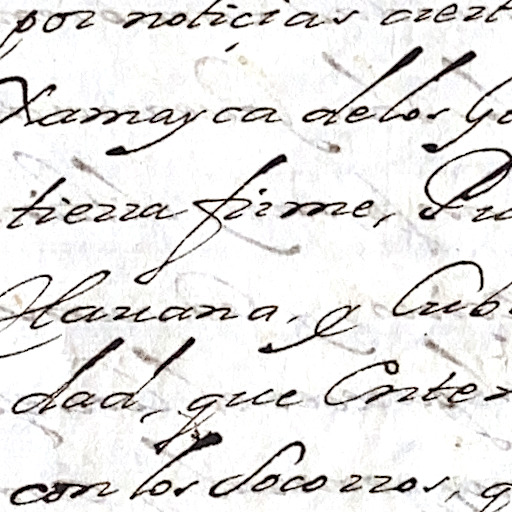 por noticias ciert
Xamayca de los Go
tierra firme, Pu
Hauana, y Cub
dad, que Enter
con los Socorros, q